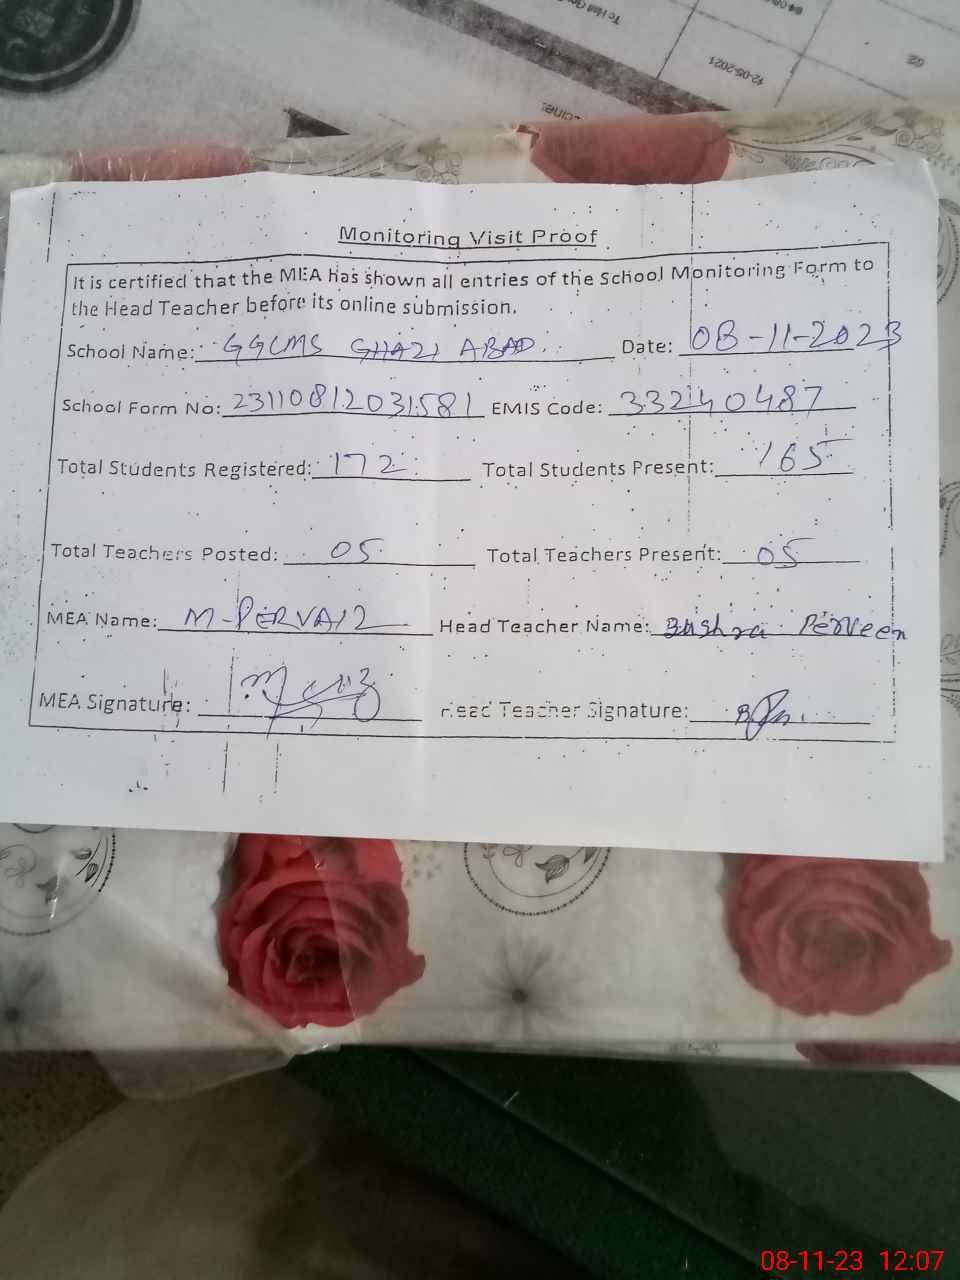 To Hall
12-05-2021
02
Monitoring Visit Proof
It is certified that the MEA has shown all entries of the School Monitoring Form to
the Head Teacher before its online submission.
School Name: GGCMS GHAZI ABAD Date: 08-11-2023
School Form No: 23110812031581 EMIS Code: 33240487
Total Students Registered: 172 Total Students Present: 165
Total Teachers Posted: 05 Total Teachers Present: 05
MEA Name: M-PERVAIZ Head Teacher Name: Bushra Perveen
MEA Signature: Head Teacher Signature:
08-11-23 12:07